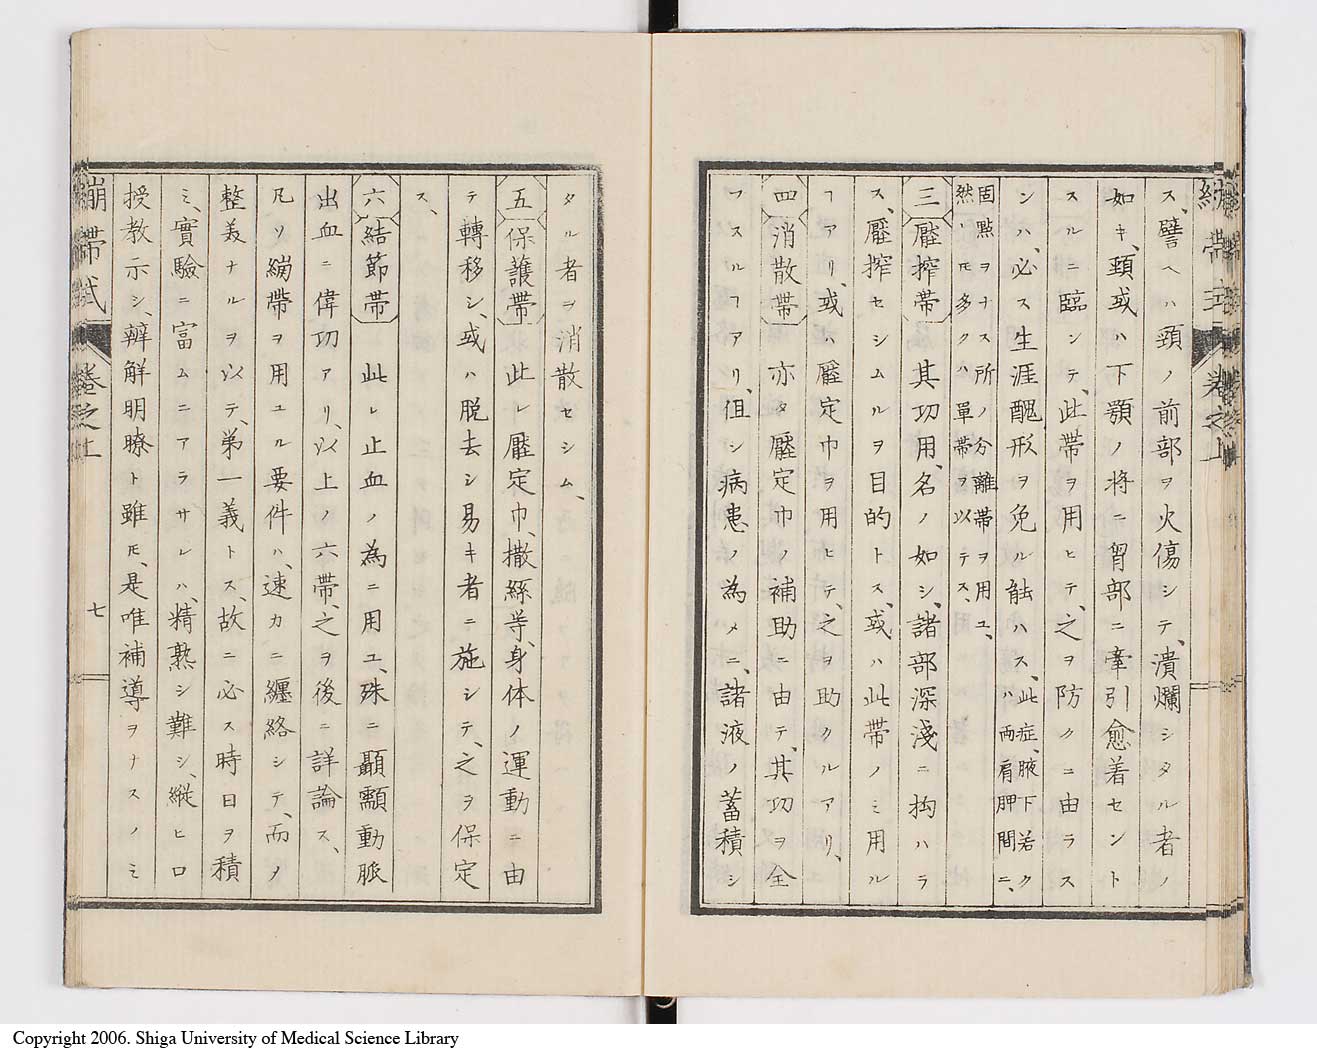 繃帶式 卷之上
ス、譬ヘハ頸ノ前部ヲ火傷シテ、潰爛シタル者ノ
如キ、頸或ハ下顎ノ将ニ胷部ニ牽引愈着セント
スルニ臨ンテ、此帯ヲ用ヒテ、之ヲ防クニ由ラス
ンハ、必ス生涯醜形ヲ免ル能ハス、此症、腋下若ク
ハ両肩胛間ニ、
固點ヲナス所ノ分離帯ヲ用ユ、
然𪜈多クハ單帯ヲ以テス、
三壓搾帯 其功用、名ノ如シ、諸部深淺ニ拘ハラ
ス、壓搾セシムルヲ目的トス、或ハ此帯ノミ用ル
ヿアリ、或ハ壓定巾ヲ用ヒテ、之ヲ助クルアリ、
四消散帯 亦タ壓定巾ノ補助ニ由テ、其功ヲ全
フスルヿアリ、但シ病患ノ為メニ、諸液ノ蓄積シ
タル者ヲ消散セシム、
五保護帯 此レ壓定巾、撒絲等、身体ノ運動ニ由
テ轉移シ、或ハ脱去シ易キ者ニ施シテ、之ヲ保定
ス、
六結節帯 此レ止血ノ為ニ用ユ、殊ニ顳顬動脈
出血ニ偉功アリ、以上ノ六帯、之ヲ後ニ詳論ス、
凡ソ繃帯ヲ用ユル要件ハ、速カニ纒絡シテ、而メ
整美ナルヲ以テ、弟一義トス、故ニ必ス時日ヲ積
ミ、實驗ニ富ムニアラサレハ、精熟シ難シ、縦ヒ口
授教示シ、辨解明瞭ト雖𪜈、是唯補導ヲナスノミ
繃帶式 卷之上 七
Copyright 2006. Shiga University of Medical Science Library